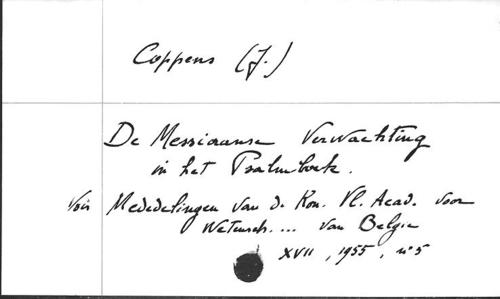 Coppens (J.)
De Messiaanse Verwachting
in het Psalmboek.
Voir Mededelingen van de Kon. Vl. Acad. voor
Wetensch. ... van Belgie
XVII, 1955, n° 5